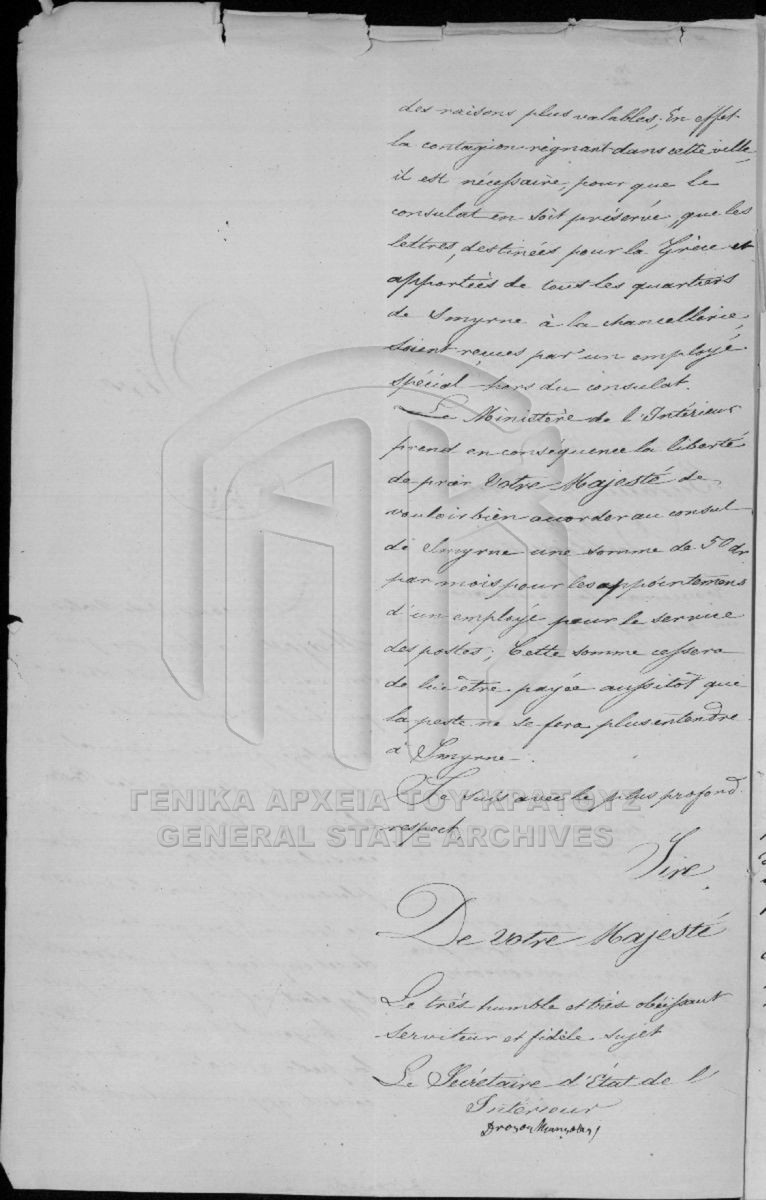 des raisons plus valables; En effet
la contagion régnant dans cette ville,
il est nécessaire, pour que le
consulat en soit préservé, que les
lettres, destinées pour la Grèce et
apportées de tous les quartiers
de Smyrne à la chancellerie,
soient reçues par un employé
spécial hors du consulat.
Le Ministère de l'Intérieur
prend en conséquence la liberté
de prier Votre Majesté de
vouloir bien accorder au consul
de Smyrne une somme de 50 dr
par mois pour les appointemens
d'un employé pour le service
des postes; Cette somme cessera
de lui être payée aussitôt que
la peste ne se fera plus entendre
à Smyrne.
ΓΕΝΙΚΑ ΑΡΧΕΙΑ ΤΟΥ ΚΡΑΤΟΥΣ
GENERAL STATE ARCHIVES
Je suis avec le plus profond
respect,
Sire,
De Votre Majesté
Le très humble et très obéissant
serviteur et fidèle sujet
Le Secrétaire d'État de l'
Intérieur